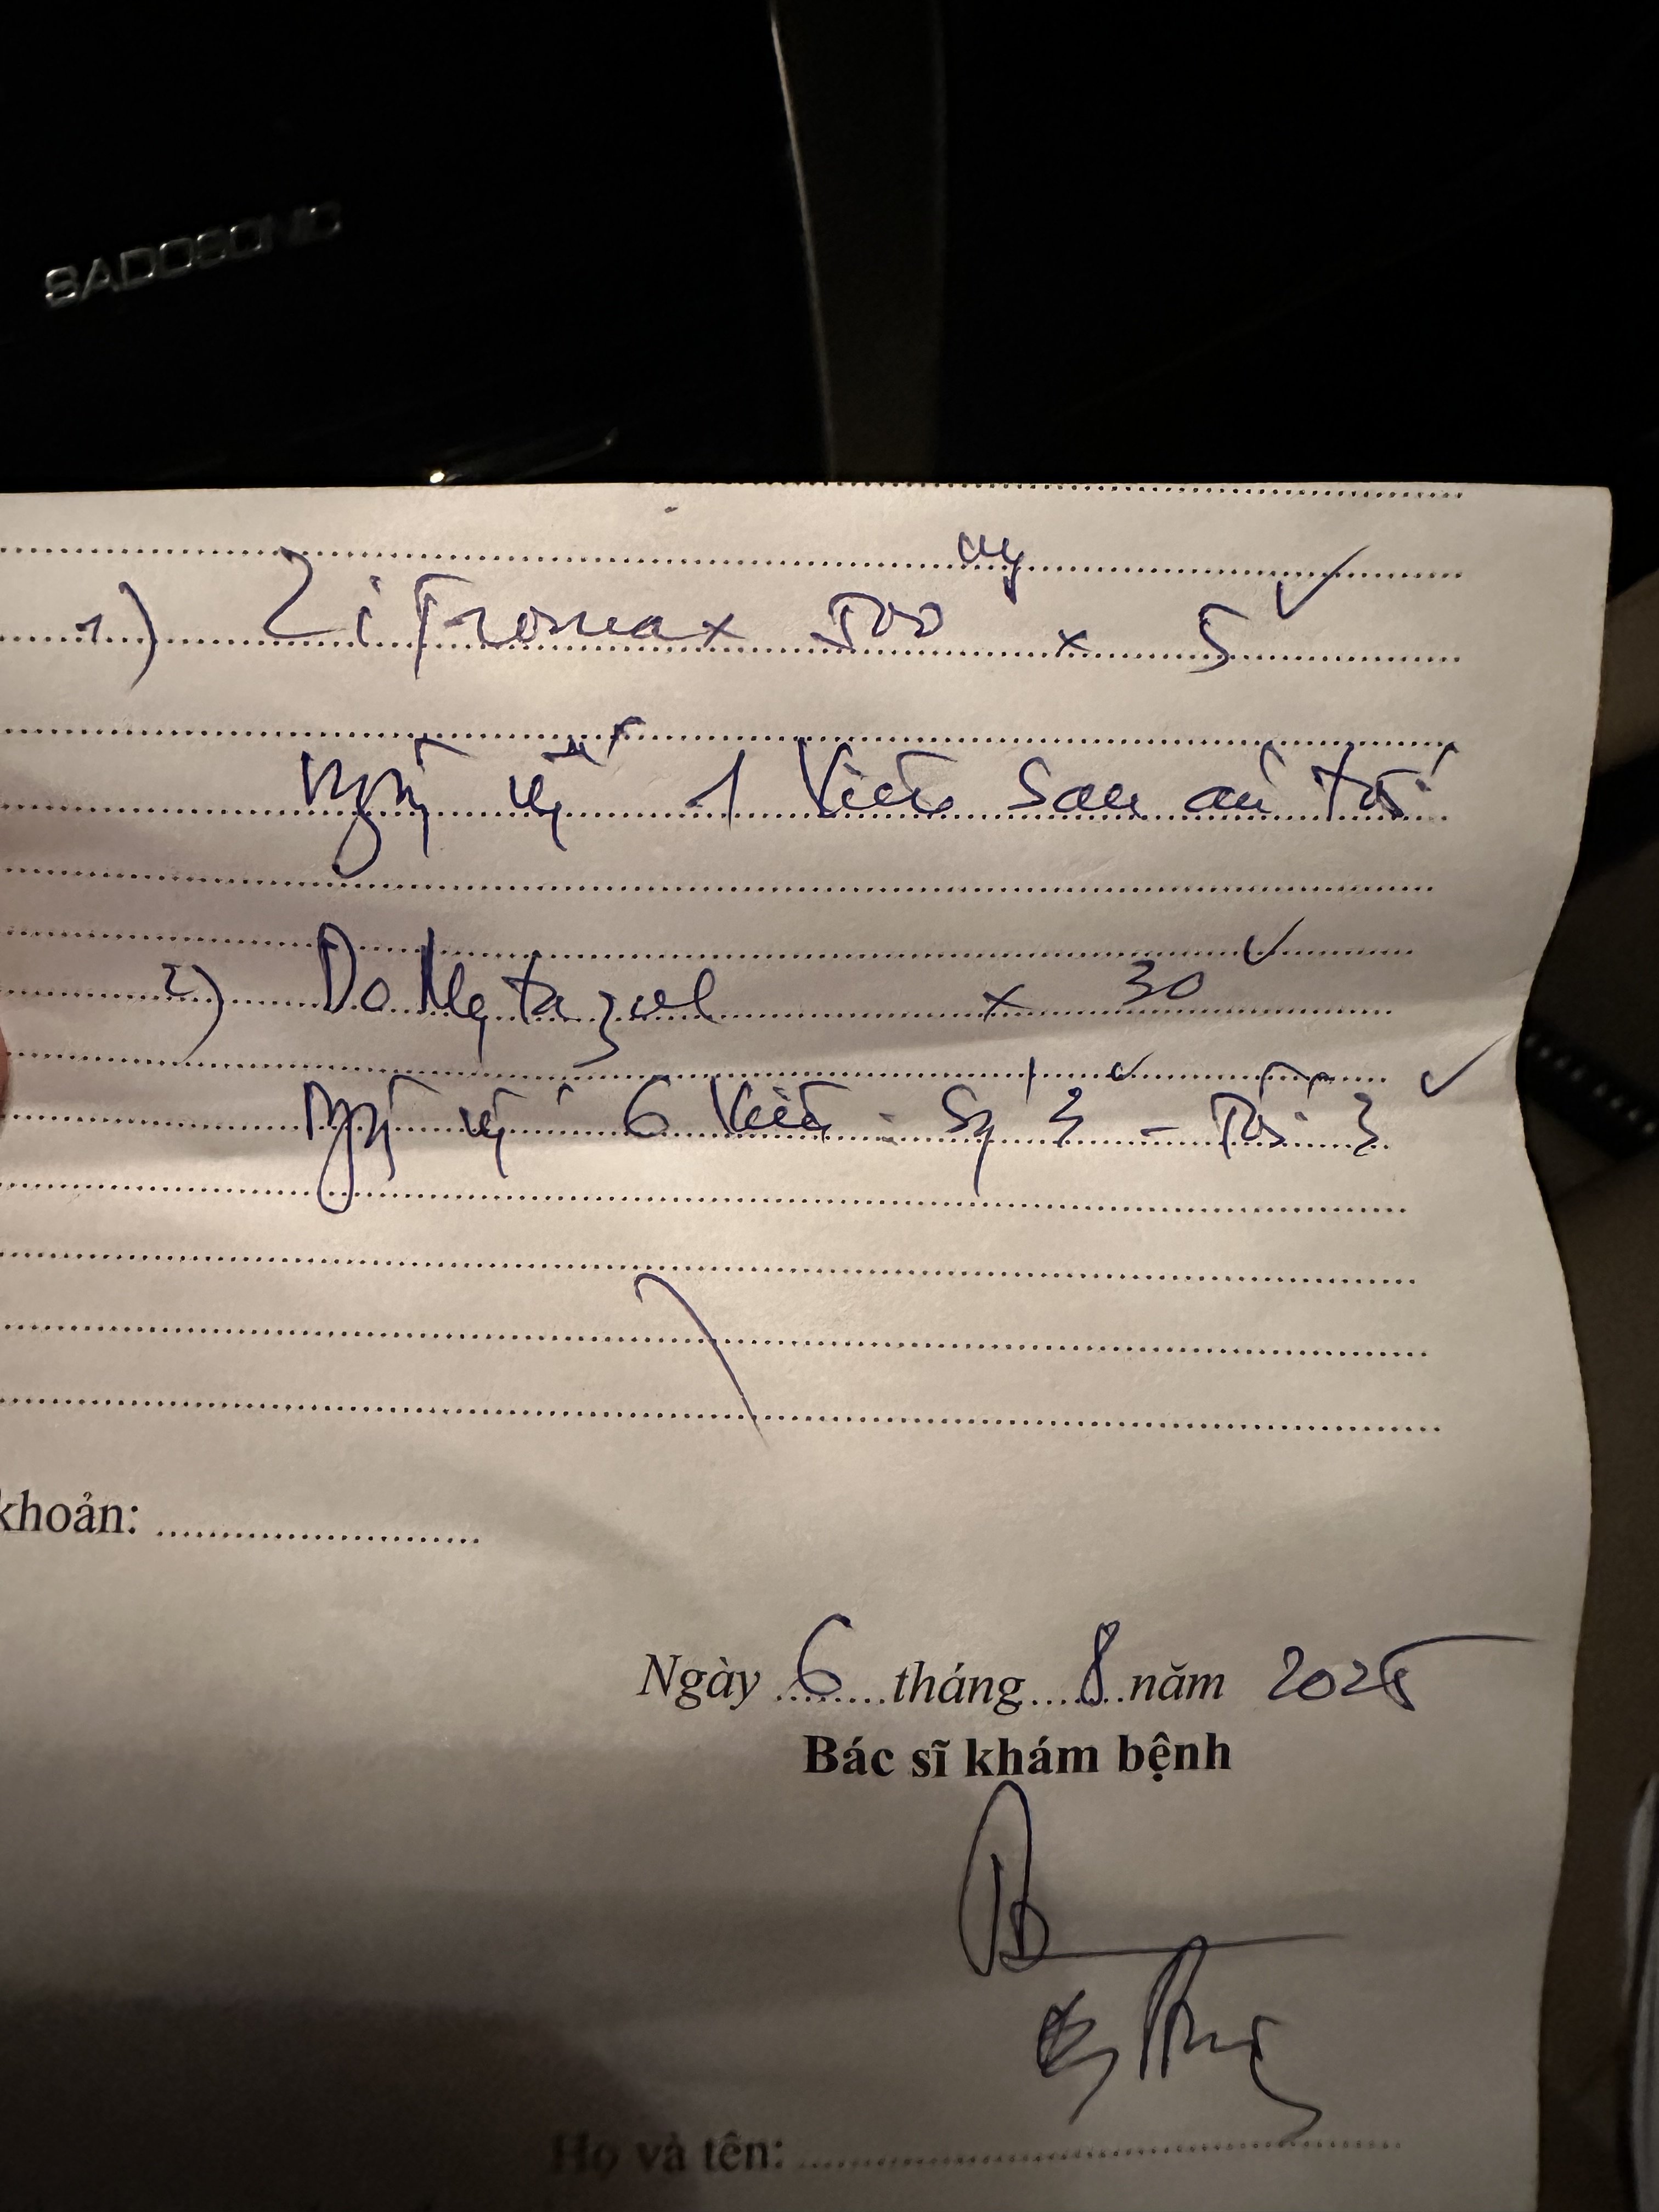 SADOSONIC
1) Zitromax 500 mg x 5
Ngày uống 1 viên sau ăn tối
2) Dometazol x 30
Ngày uống 6 viên - Sg 3 - Tối 3
khoản: ........................
Ngày 6 tháng 8 năm 2025
Bác sĩ khám bệnh
Họ và tên: ........................